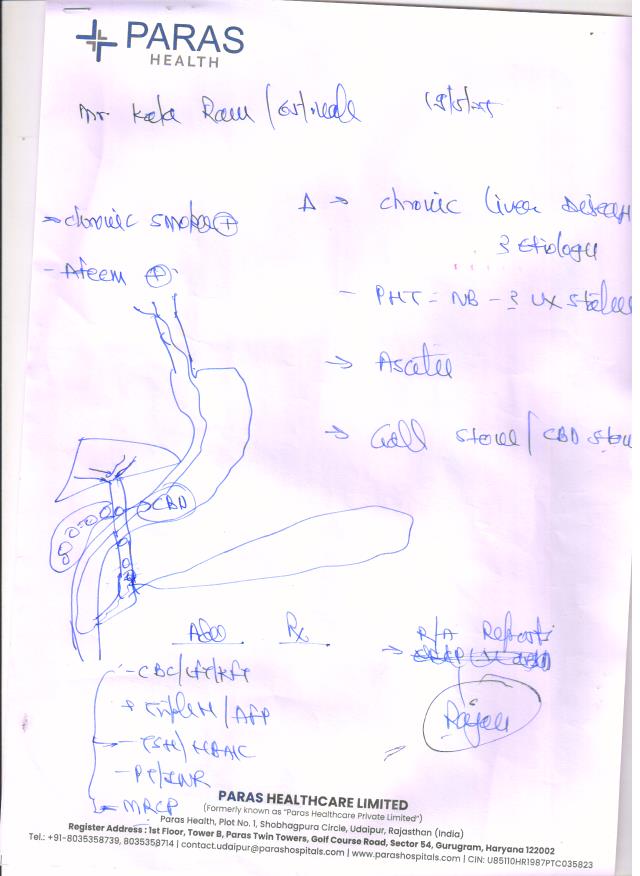 PARAS
HEALTH
Mr. Kala Ram /
→ chronic smoker +
- Afeem +
Δ → chronic Liver Disease
? Etiology
- PHT = NB - ?
→
→ Gall stone / CBD
CBD
Adv Rx
- CBC/LFT/KFT
+ Triple H / AFP
- TSH/HBA1C
- PT/INR
- MRCP
R/A
→
PARAS HEALTHCARE LIMITED
(Formerly known as "Paras Healthcare Private Limited")
Paras Health, Plot No. 1, Shobhagpura Circle, Udaipur, Rajasthan (India)
Register Address : 1st Floor, Tower B, Paras Twin Towers, Golf Course Road, Sector 54, Gurugram, Haryana 122002
Tel.: +91-8035358739, 8035358714 | contact.udaipur@parashospitals.com | www.parashospitals.com | CIN: U85110HR1987PTC035823